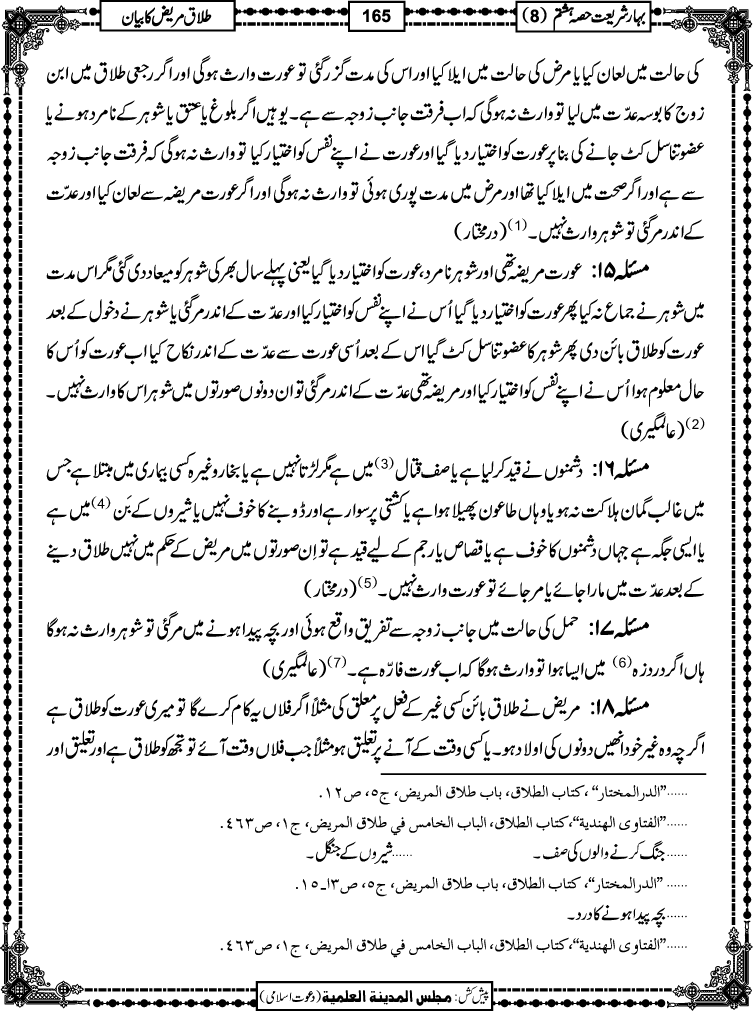 بہارِ شریعت حصہ ہشتم (8)
165
طلاق مریض کا بیان
کی حالت میں لعان کیا یا مرض کی حالت میں ایلا کیا اور اس کی مدت گزر گئی تو عورت وارث ہوگی اور اگر رجعی طلاق میں ابن
زوج کا بوسہ عدّت میں لیا تو وارث نہ ہوگی کہ اب فرقت جانب زوجہ سے ہے۔ یوہیں اگر بلوغ یا عتق یا شوہر کے نامرد ہونے یا
عضو تناسل کٹ جانے کی بنا پر عورت کو اختیار دیا گیا اور عورت نے اپنے نفس کو اختیار کیا تو وارث نہ ہوگی کہ فرقت جانب زوجہ
سے ہے اور اگر صحت میں ایلا کیا تھا اور مرض میں مدت پوری ہوئی تو وارث نہ ہوگی اور اگر عورت مریضہ سے لعان کیا اور عدّت
کے اندر مرگئی تو شوہر وارث نہیں۔(1) (درمختار)
مسئلہ ۱۵: عورت مریضہ تھی اور شوہر نامرد، عورت کو اختیار دیا گیا یعنی پہلے سال بھر کی شوہر کو میعاد دی گئی مگر اس مدت
میں شوہر نے جماع نہ کیا پھر عورت کو اختیار دیا گیا اُس نے اپنے نفس کو اختیار کیا اور عدّت کے اندر مرگئی یا شوہر نے دخول کے بعد
عورت کو طلاق بائن دی پھر شوہر کا عضو تناسل کٹ گیا اس کے بعد اُسی عورت سے عدّت کے اندر نکاح کیا اب عورت کو اُس کا
حال معلوم ہوا اُس نے اپنے نفس کو اختیار کیا اور مریضہ تھی عدّت کے اندر مرگئی تو ان دونوں صورتوں میں شوہر اس کا وارث نہیں۔
(2) (عالمگیری)
مسئلہ ۱۶: دشمنوں نے قید کر لیا ہے یا صف قتال (3) میں ہے مگر لڑتا نہیں ہے یا بخار وغیرہ کسی بیماری میں مبتلا ہے جس
میں غالب گمان ہلاکت نہ ہو یا وہاں طاعون پھیلا ہوا ہے یا کشتی پر سوار ہے اور ڈوبنے کا خوف نہیں یا شیروں کے بَن (4) میں ہے
یا ایسی جگہ ہے جہاں دشمنوں کا خوف ہے یا قصاص یا رجم کے لیے قید ہے تو اِن صورتوں میں مریض کے حکم میں نہیں طلاق دینے
کے بعد عدّت میں مارا جائے یا مرجائے تو عورت وارث نہیں۔(5) (درمختار)
مسئلہ ۱۷: حمل کی حالت میں جانب زوجہ سے تفریق واقع ہوئی اور بچہ پیدا ہونے میں مرگئی تو شوہر وارث نہ ہوگا
ہاں اگر دردِ زہ (6) میں ایسا ہوا تو وارث ہوگا کہ اب عورت فارّہ ہے۔(7) (عالمگیری)
مسئلہ ۱۸: مریض نے طلاق بائن کسی غیر کے فعل پر معلق کی مثلاً اگر فلاں یہ کام کرے گا تو میری عورت کو طلاق ہے
اگرچہ وہ غیر خود انھیں دونوں کی اولاد ہو۔ یا کسی وقت کے آنے پر تعلیق ہو مثلاً جب فلاں وقت آئے تو تجھ کو طلاق ہے اور تعلیق اور
......”الدرالمختار“، کتاب الطلاق، باب طلاق المریض، ج۵، ص۱۲.
......”الفتاوی الھندیة“، کتاب الطلاق، الباب الخامس في طلاق المریض، ج۱، ص٤٦٣.
......جنگ کرنے والوں کی صف۔ ......شیروں کے جنگل۔
......”الدرالمختار“، کتاب الطلاق، باب طلاق المریض، ج۵، ص۱۳۔۱۵.
......بچہ پیدا ہونے کا درد۔
......”الفتاوی الھندیة“، کتاب الطلاق، الباب الخامس في طلاق المریض، ج۱، ص٤٦٣.
پیش کش: مجلس المدینة العلمیة (دعوت اسلامی)